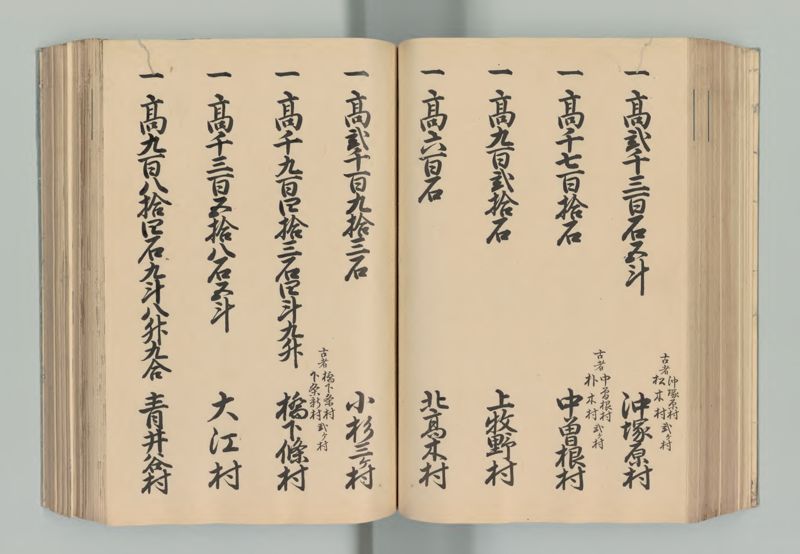 一 高弐千三百石五斗
古者 沖塚原村
松木村 弐ヶ村
沖塚原村
一 高千七百拾石
古者 中曽根村
朴木村 弐ヶ村
中曽根村
一 高九百弐拾石
上牧野村
一 高六百石
北高木村
一 高弐千百九拾三石
小杉三ヶ村
一 高千九百四拾三石四斗九升
古者 橋下条村
下条新村 弐ヶ村
橋下條村
一 高千三百五拾八石五斗
大江村
一 高九百八拾四石九斗八升九合
青井谷村